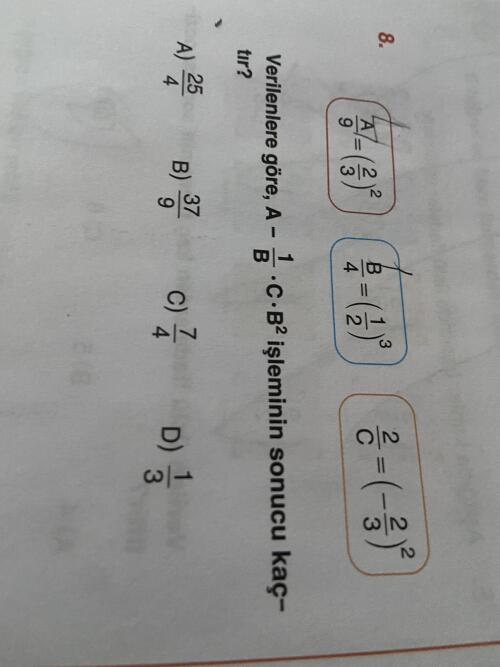 8.
A/9 = (2/3)² B/4 = (1/2)³ 2/C = (-2/3)²
Verilenlere göre, A - 1/B · C · B² işleminin sonucu kaç-
tır?
A) 25/4 B) 37/9 C) 7/4 D) 1/3